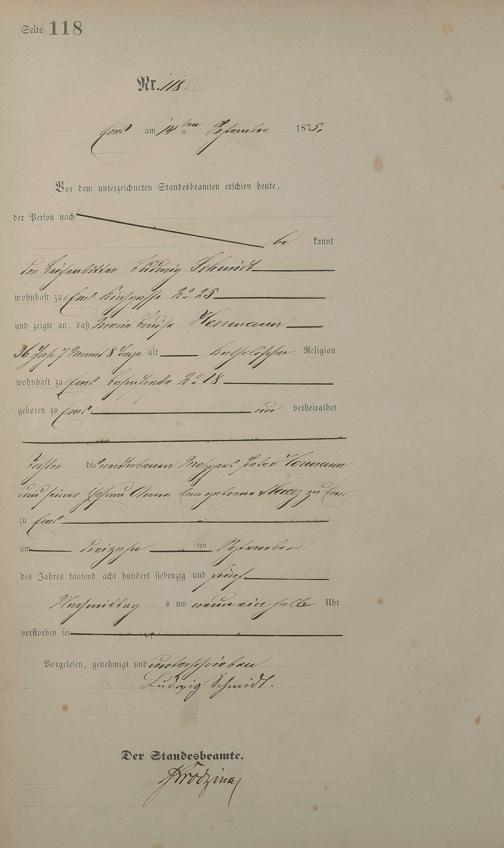 Seite 118
Nr. 118.
Ems am 14ten September 1875.
Vor dem unterzeichneten Standesbeamten erschien heute,
der Person nach
be kannt
der Leichenbitter Ludwig Schmidt
wohnhaft zu Ems Kirchgasse No 25
und zeigte an, daß Maria Louise Hermann
36 Jahre 7 Monat 8 Tage alt katholischer Religion
wohnhaft zu Ems No 18
geboren zu Ems un verheirathet
Tochter des verstorbenen Metzgers Peter Hermann
und seiner Ehefrau Anna geborene zu
zu Ems
am dreizehn ten September
des Jahres tausend acht hundert siebenzig und fünf
Nachmittag s um neun ein halb Uhr
verstorben sei
Vorgelesen, genehmigt und unterschrieben
Ludwig Schmidt.
Der Standesbeamte.